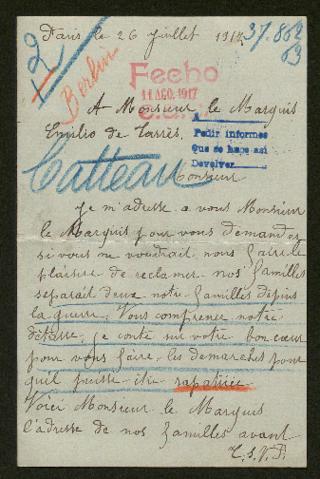 Paris le 26 Juillet 1917
37.862
63
2
Berlin
Fecho
11 AGO. 1917
A Monsieur le Marquis
Emilio de Tarrès,
Pedir informes
Que se hape asi
Devolver
Catteau
Monsieur
Je m'adresse a vous Monsieur
le Marquis pour vous demander
si vous me voudrait nous faire le
plaisir de reclamer nos familles
separait deux notre familles depuis
la guerre. Vous comprenez notre
détresse je conte sur votre bon cœur
pour vous faire les demarches pour
qu'il puisse être rapatriée
Voici Monsieur le Marquis
l'adresse de nos familles avant
T.S.V.P.